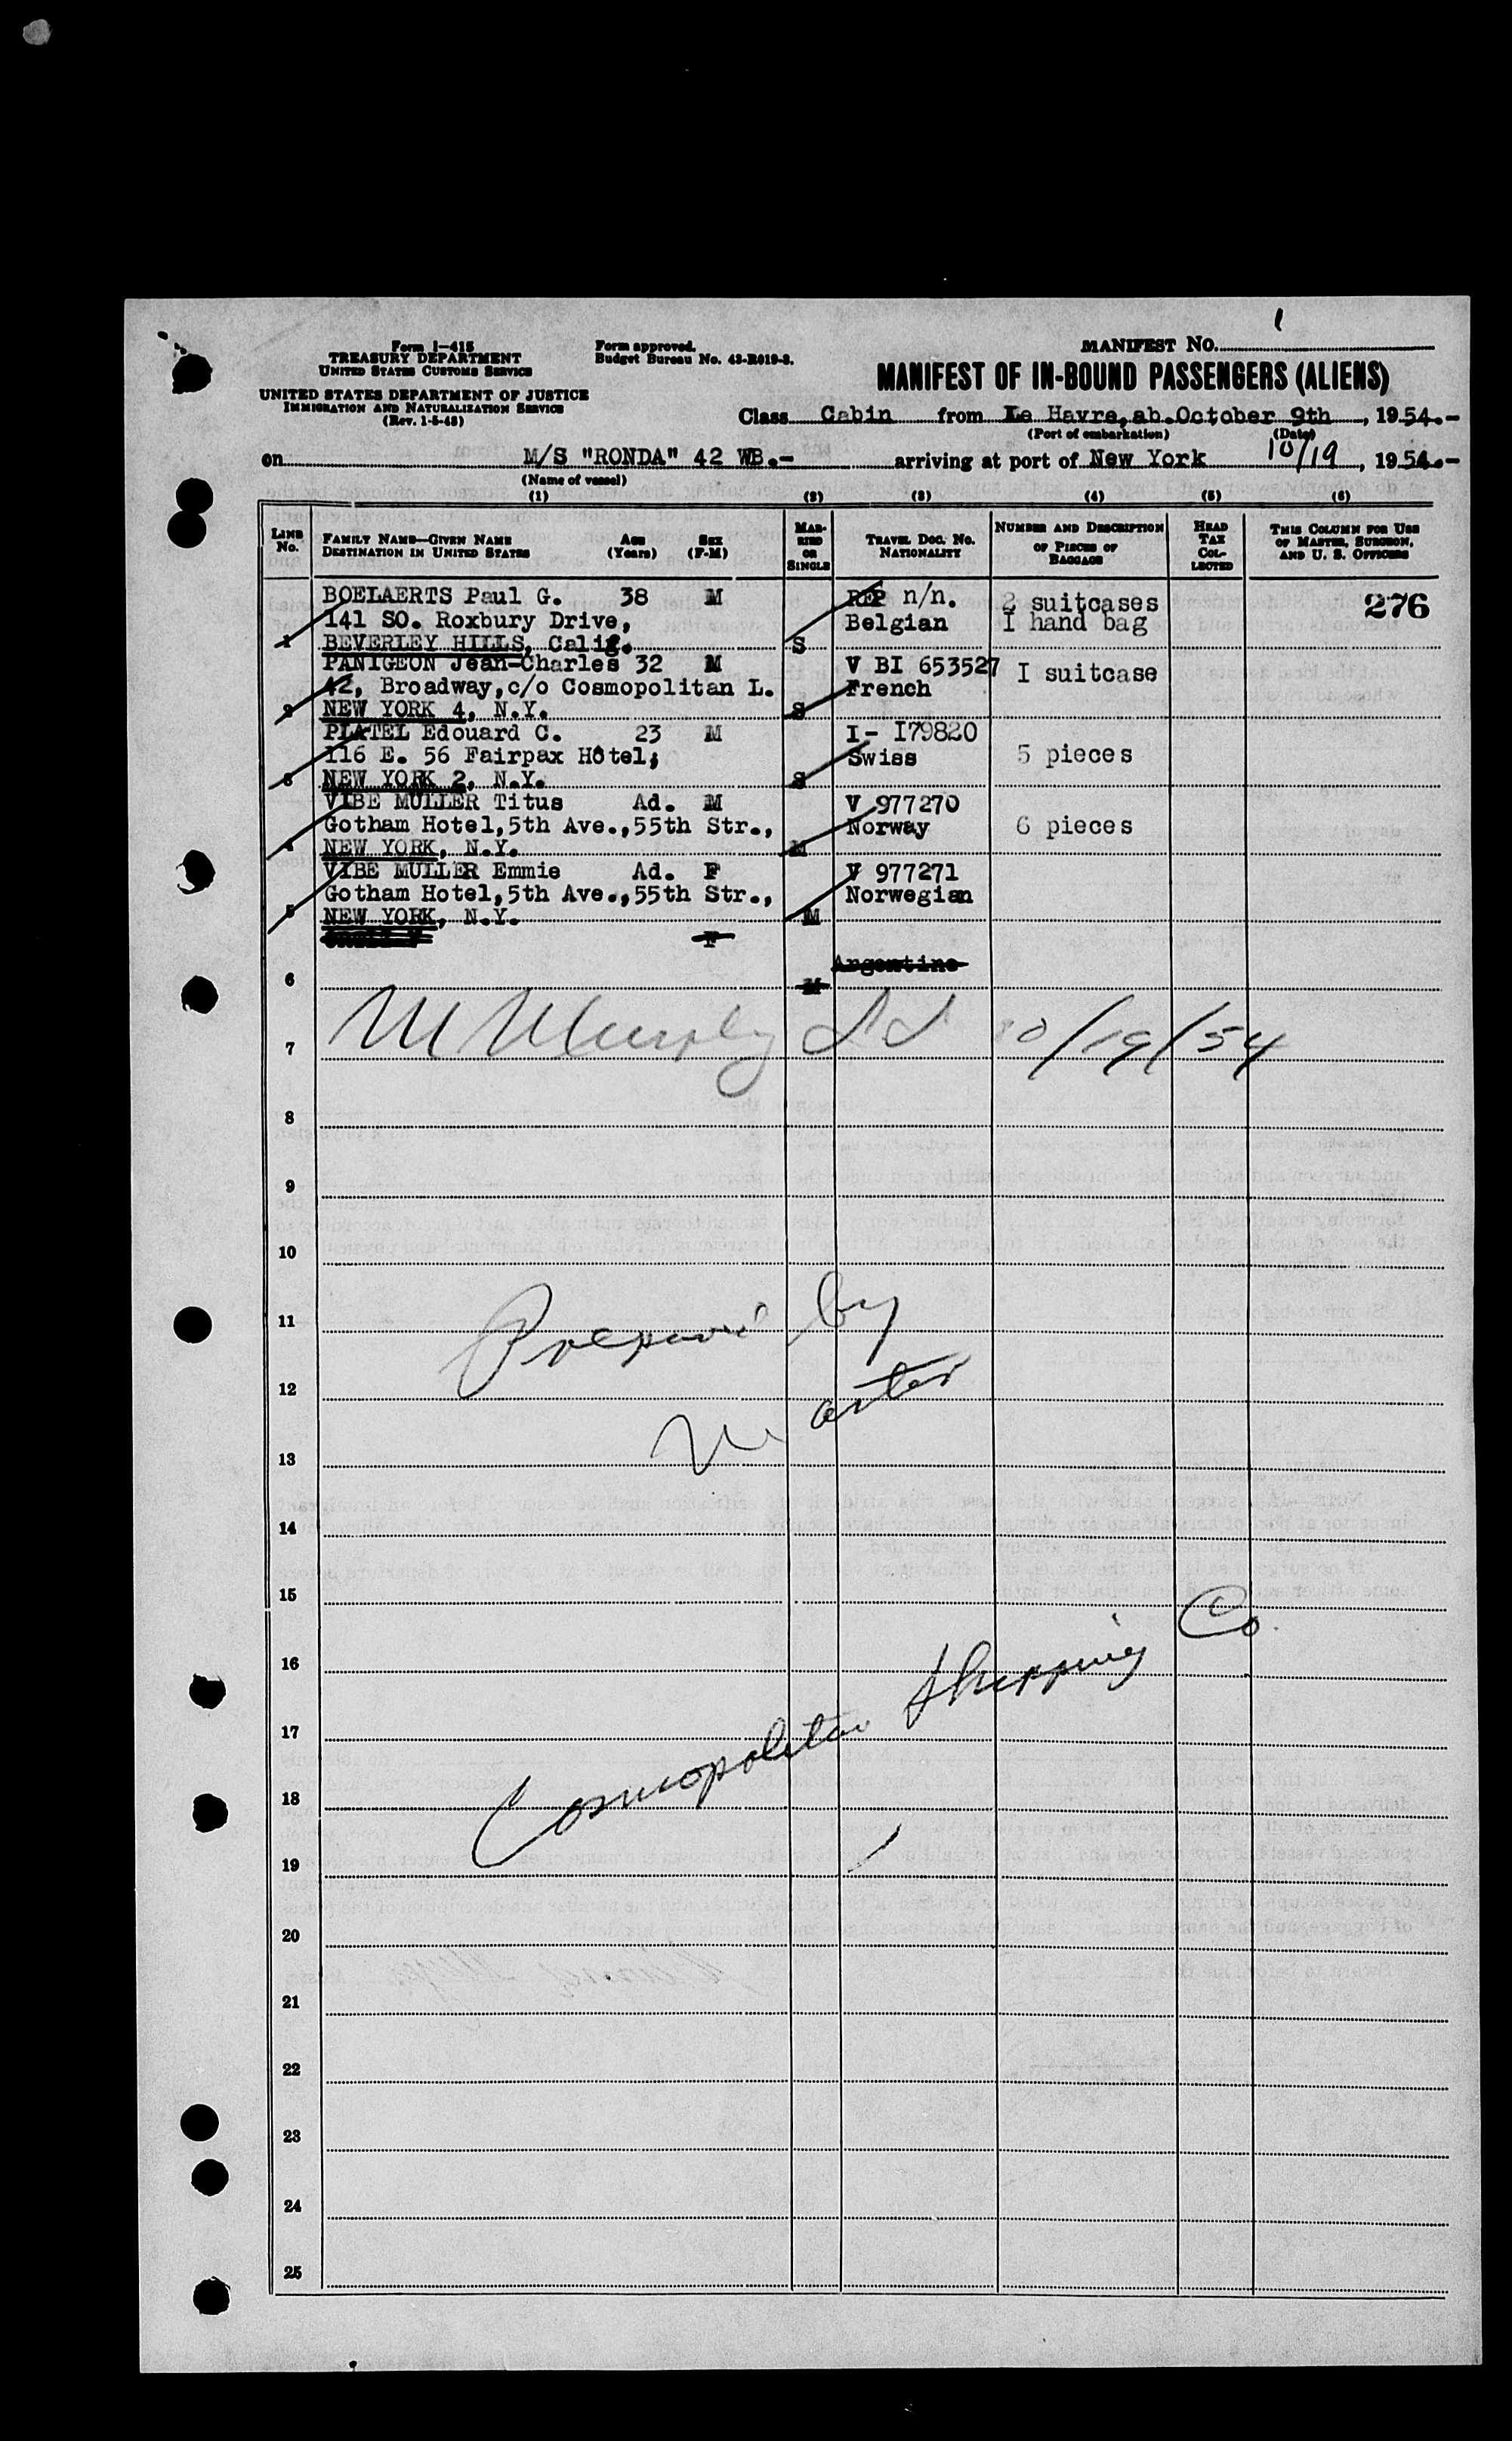 1
Form I-415
TREASURY DEPARTMENT
UNITED STATES CUSTOMS SERVICE
UNITED STATES DEPARTMENT OF JUSTICE
IMMIGRATION AND NATURALIZATION SERVICE
(Rev. 1-5-48)
Form approved.
Budget Bureau No. 43-R019-3.
MANIFEST NO.
MANIFEST OF IN-BOUND PASSENGERS (ALIENS)
Class Cabin from Le Havre, ab. October 9th, 1954.-
(Port of embarkation) (Date)
on M/S "RONDA" 42 WB.- arriving at port of New York 10/19, 1954.-
(Name of vessel)
(1) (2) (3) (4) (5) (6)
LINE No. FAMILY NAME—GIVEN NAME DESTINATION IN UNITED STATES AGE (Years) SEX (F-M) MARRIED OR SINGLE TRAVEL DOC. NO. NATIONALITY NUMBER AND DESCRIPTION OF PIECES OF BAGGAGE HEAD TAX COLLECTED THIS COLUMN FOR USE OF MASTER, SURGEON, AND U. S. OFFICERS
BOELAERTS Paul G. 38 M REP n/n. 2 suitcases 276
141 SO. Roxbury Drive, Belgian I hand bag
1 BEVERLEY HILLS, Calif. S
PANIGEON Jean-Charles 32 M V BI 653527 I suitcase
42, Broadway, c/o Cosmopolitan L. French
2 NEW YORK 4, N.Y. S
PLATEL Edouard C. 23 M I- I79820
116 E. 56 Fairpax Hôtel, Swiss 5 pieces
3 NEW YORK 2, N.Y. S
VIBE MULLER Titus Ad. M V 977270
Gotham Hotel, 5th Ave., 55th Str., Norway 6 pieces
4 NEW YORK, N.Y. M
VIBE MULLER Emmie Ad. F V 977271
Gotham Hotel, 5th Ave., 55th Str., Norwegian
5 NEW YORK, N.Y. M
F
Argentine
6 M
7 M Murphy 10/19/54
8
9
10
11 Prepared by
12 Master
13
14
15
16 Cosmopolitan Shipping Co.
17
18
19
20
21
22
23
24
25